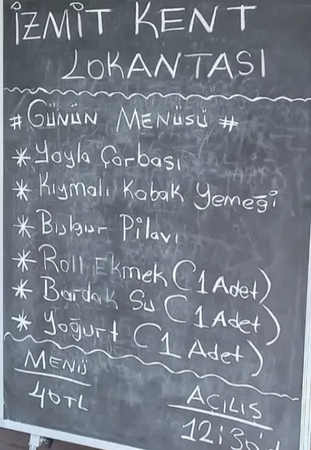 İZMİT KENT
LOKANTASI
# GÜNÜN MENÜSÜ #
* Yayla Çorbası
* Kıymalı Kabak Yemeği
* Bulgur Pilavı
* Roll Ekmek (1 Adet)
* Bardak Su (1 Adet)
* Yoğurt (1 Adet)
MENÜ
40TL
AÇILIŞ
12:30'd